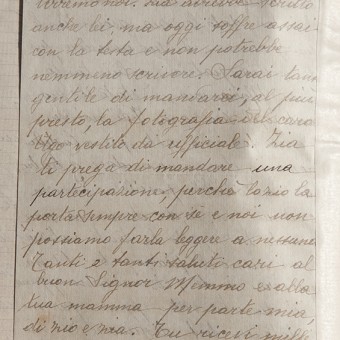 Zia avrebbe scritto
anche lei, ma oggi soffre assai
con la testa e non potrebbe
nemmeno scrivere. Sarai tan
gentile di mandarci, al piu
presto, la fotografia del caro
vestito da ufficiale. Zia
ti prega di mandare una
partecipazione, perchè lo zio la
porta sempre con sè e noi non
possiamo farla leggere a nessuno
Tanti e tanti saluti cari al
buon Signor Memmo e alla
tua mamma per parte mia,
di zio e zia. Tu ricevi mille